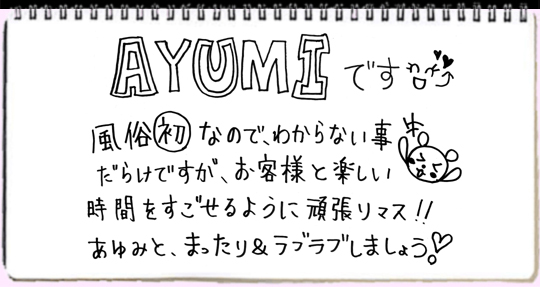 AYUMIです
風俗初なので、わからない事
だらけですが、お客様と楽しい
時間をすごせるように頑張リマス!!
あゆみと、まったり&ラブラブしましょう♡